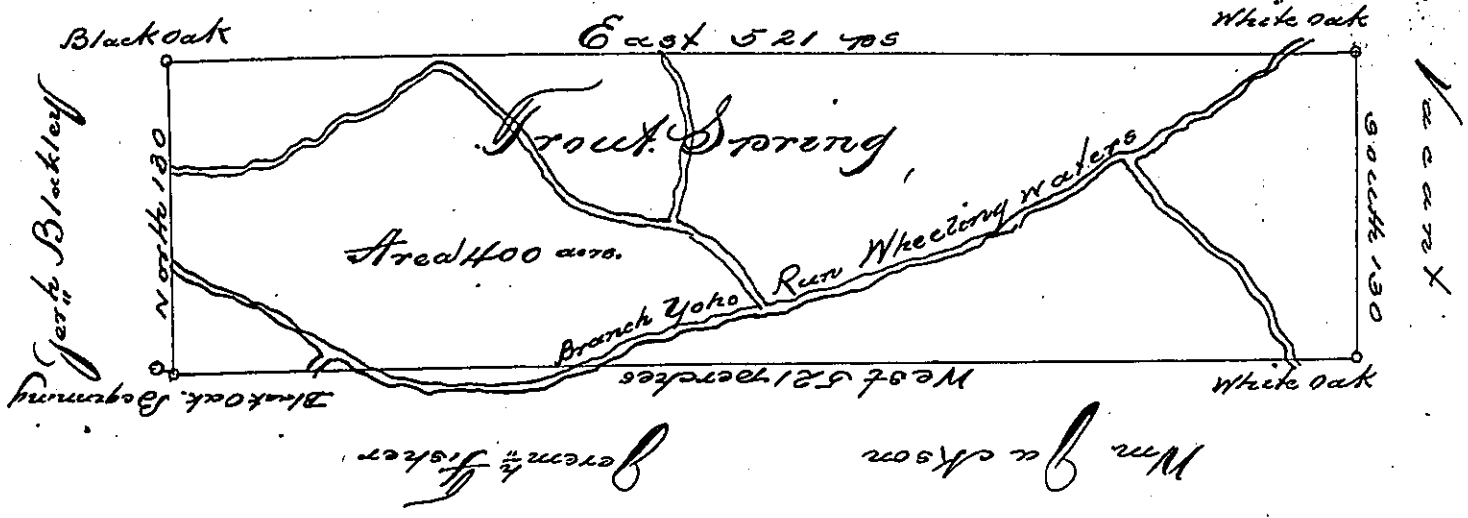 Black oak
East 521 ps
White oak
Jerh Blakley
North 130
Trout Spring
South 130
Vacant
Area 400 acrs.
Branch Yoho Run Wheeling waters
Black Oak. Beginning
West 521 perches
White oak
Jeremh Fisher
Wm Jackson